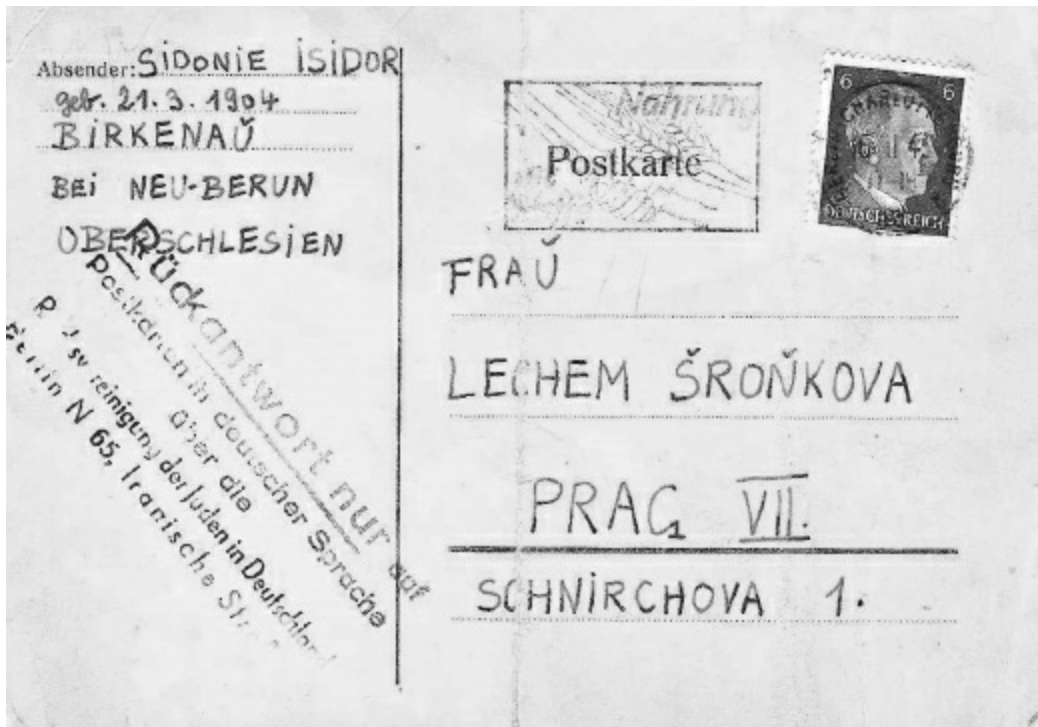 Absender: SIDONIE ISIDOR
geb. 21. 3. 1904
BIRKENAŬ
BEI NEU-BERUN
OBERSCHLESIEN
Rückantwort nur auf
Postkarten in deutscher Sprache
über die
reinigung der Juden in Deutschlan
Berlin N 65, Iranische Str
Nahrung
Postkarte
6 6
CHARLOTTE
DEUTSCHES REICH
FRAŬ
LECHEM ŠROŇKOVA
PRAG VII.
SCHNIRCHOVA 1.